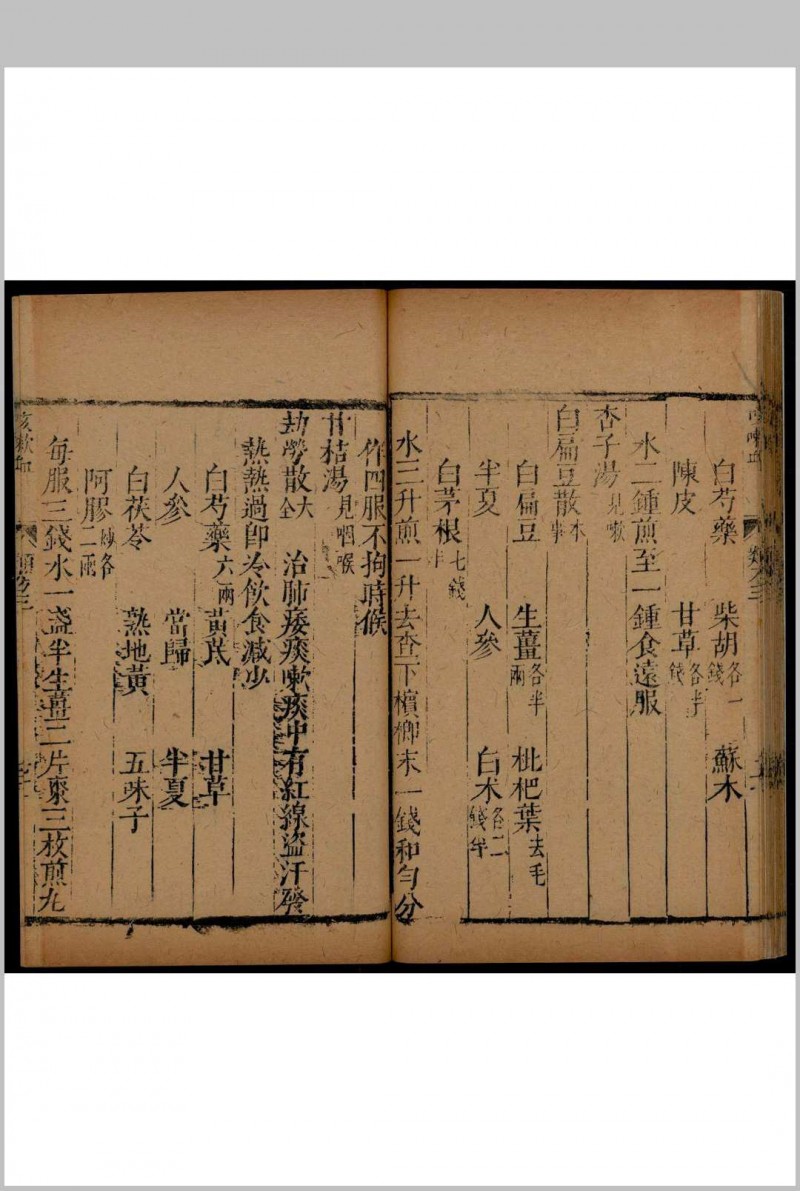 白芍藥 柴胡各一錢 蘇木
陳皮 甘草各半錢
水二鍾煎至一鍾食遠服
杏子湯見嗽
白扁豆散本事
白扁豆 生薑各半兩 枇杷葉去毛
半夏 人參 白朮各二錢半
白茅根七錢半
水三升煎一升去查下檳榔末一錢和勻分
作四服不拘時候
甘桔湯見咽喉
劫勞散大全 治肺痿痰嗽痰中有紅線盜汗發
熱熱過即冷飲食減少
白芍藥六兩 黃芪 甘草
人參 當歸 半夏
白茯苓 熟地黃 五味子
阿膠炒各二兩
每服三錢水一盞半生薑二片棗三枚煎九
咳嗽血 類方三